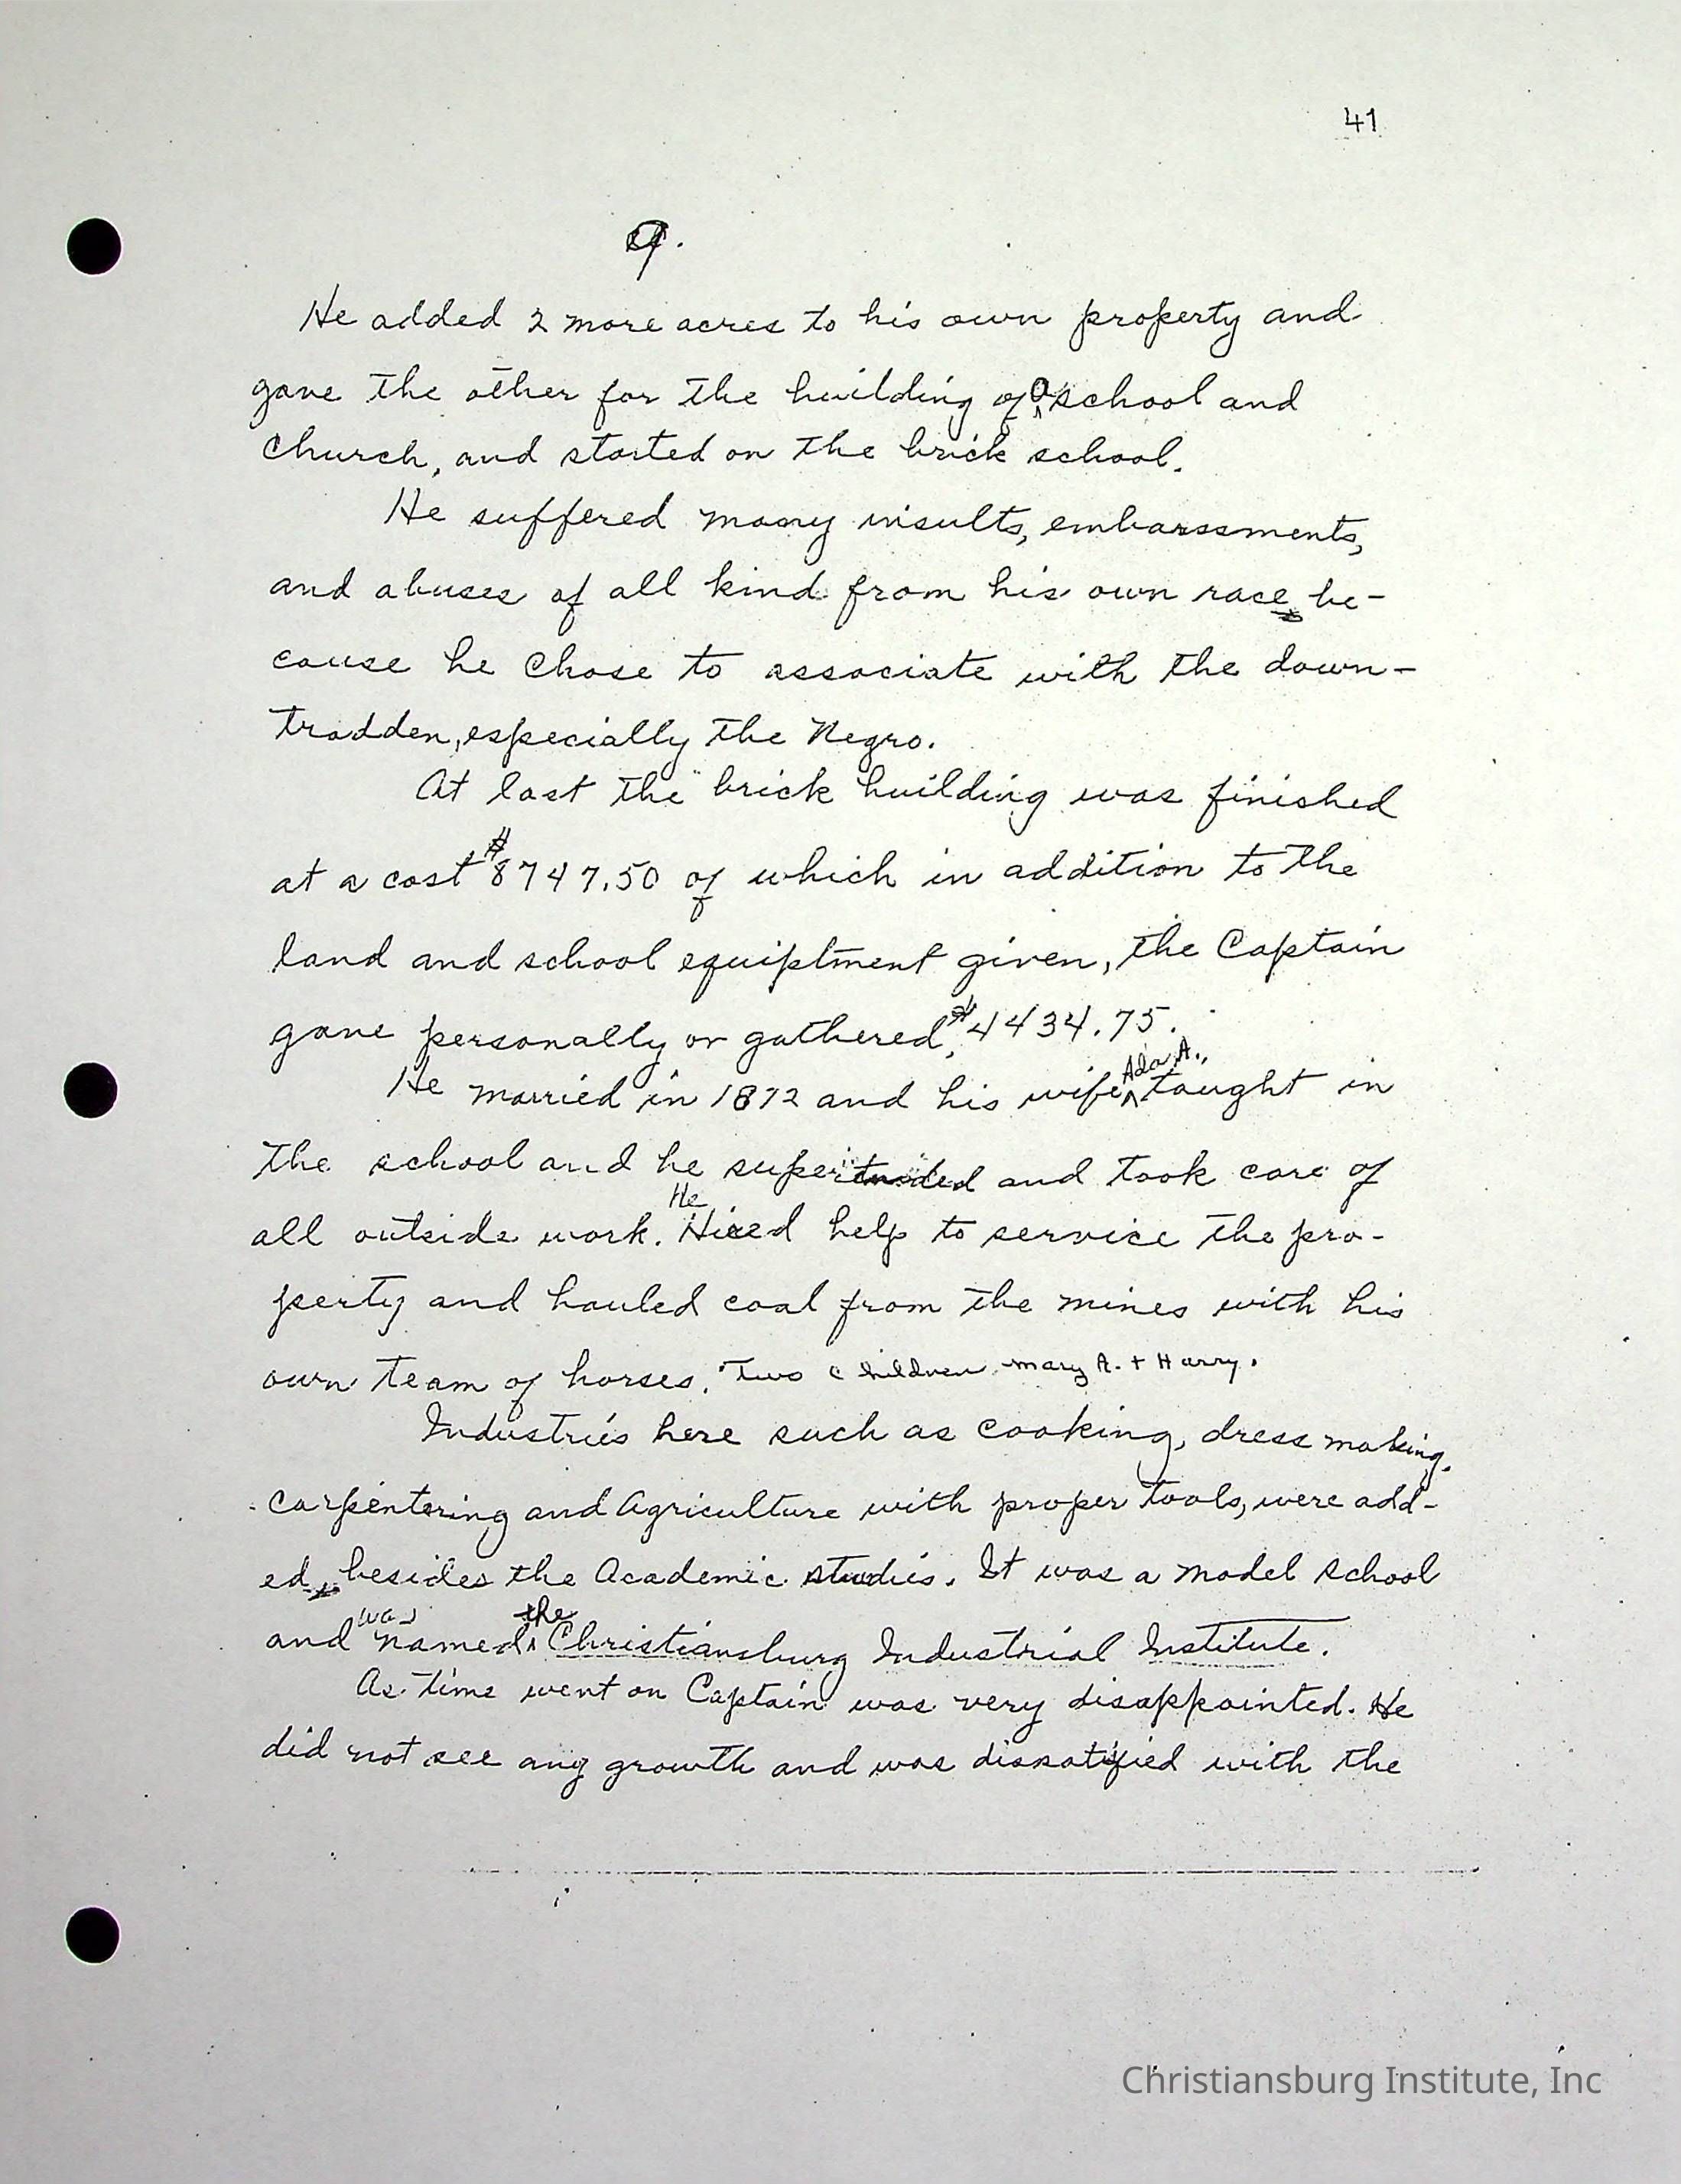 41
9.
He added 2 more acres to his own property and
gave the other for the building of a school and
Church, and started on the brick school.
He suffered many insults, embarssments,
and abuses of all kind from his own race be-
cause he chose to associate with the down-
trodden, especially the Negro.
At last the brick building was finished
at a cost $8747.50 of which in addition to the
land and school equiptment given, the Captain
gave personally or gathered, $4434.75.
He married in 1872 and his wife, Ada A., taught in
the school and he superitended and took care of
all outside work. He Hired help to service the pro-
perty and hauled coal from the mines with his
own team of horses. Two children Mary A. + Harry.
Industries here such as cooking, dress making,
carpentering and Agriculture with proper tools, were add-
ed, besides the Academic studies. It was a model school
and was named the Christiansburg Industrial Institute.
As time went on Captain was very disappointed. He
did not see any growth and was dissatified with the
Christiansburg Institute, Inc